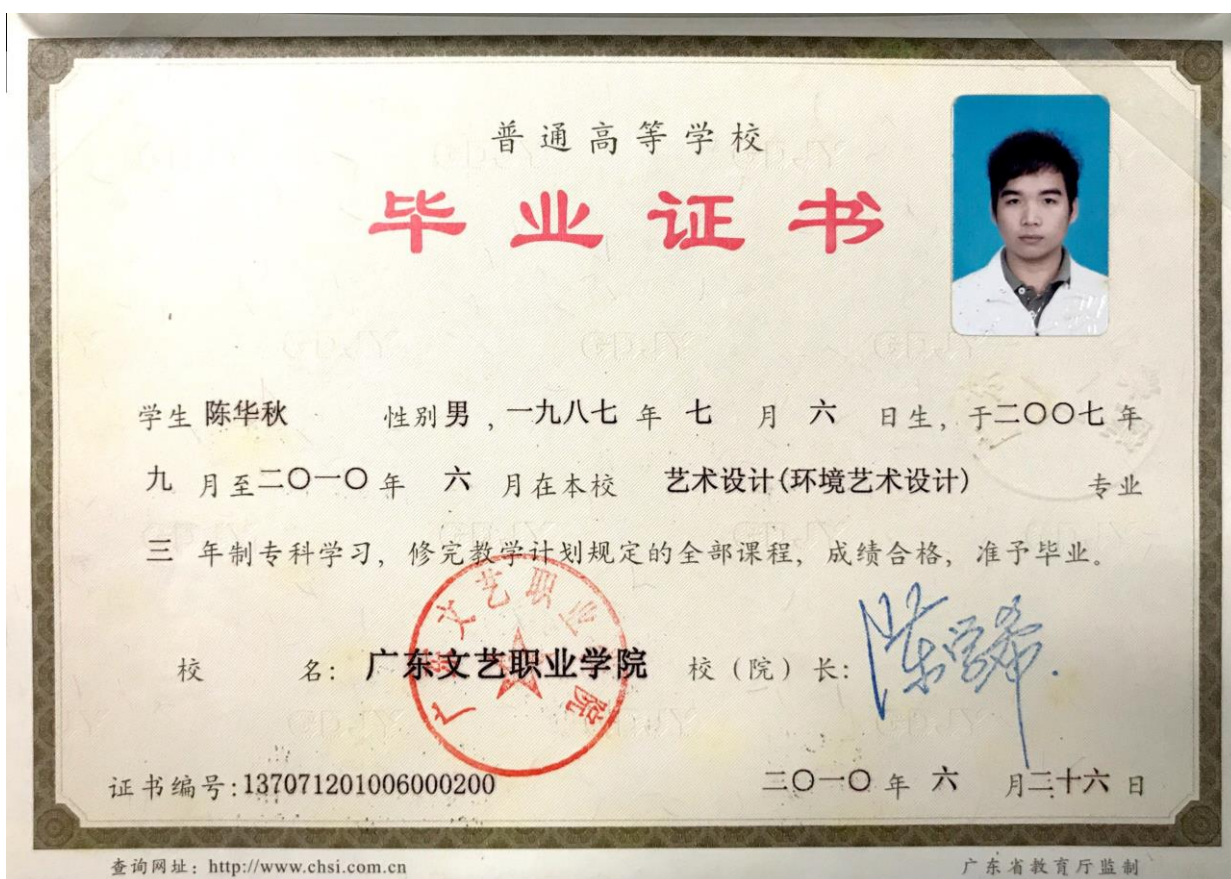 普通高等学校
毕业证书
学生 陈华秋 性别 男 , 一九八七 年 七 月 六 日生, 于二〇〇七年
九 月至二〇一〇年 六 月在本校 艺术设计(环境艺术设计) 专业
三 年制专科学习, 修完教学计划规定的全部课程, 成绩合格, 准予毕业。
校 名: 广东文艺职业学院 校(院)长:
广东文艺职业学院
证书编号:137071201006000200 二〇一〇 年 六 月二十六 日
查询网址: http://www.chsi.com.cn 广东省教育厅监制